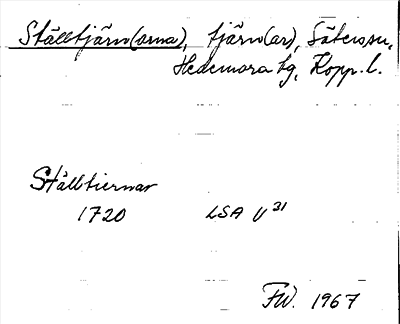 Ställtjärn(arna), tjärn(ar), Säters sn,
Hedemora tg, Kopp. l.
Ställtiernar
1720 LSA U 31
FW. 1967